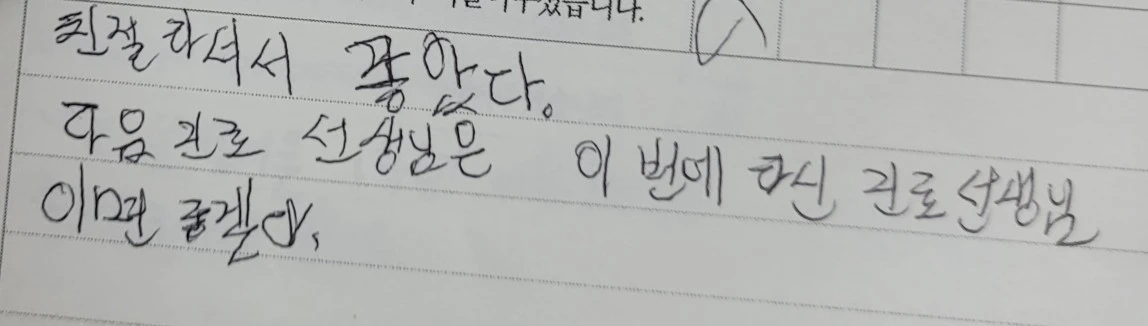 있습니다.
친절하셔서 좋았다.
다음 진로 선생님은 이 번에 하신 진로선생님
이면 좋겠다.